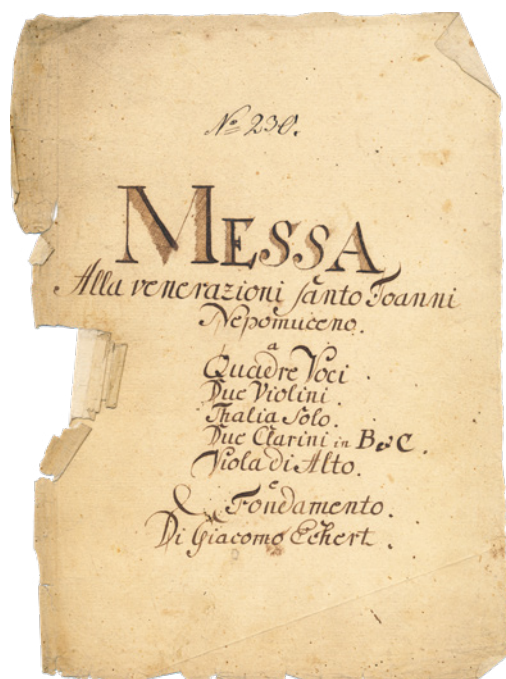 No 230.
MESSA
Alla venerazioni santo Joanni
Nepomuceno.
a
Quadre Voci.
Due Violini.
Thalia Solo.
Due Clarini in B et C.
Viola di Alto.
e
Fondamento.
Di Giacomo Eckert.